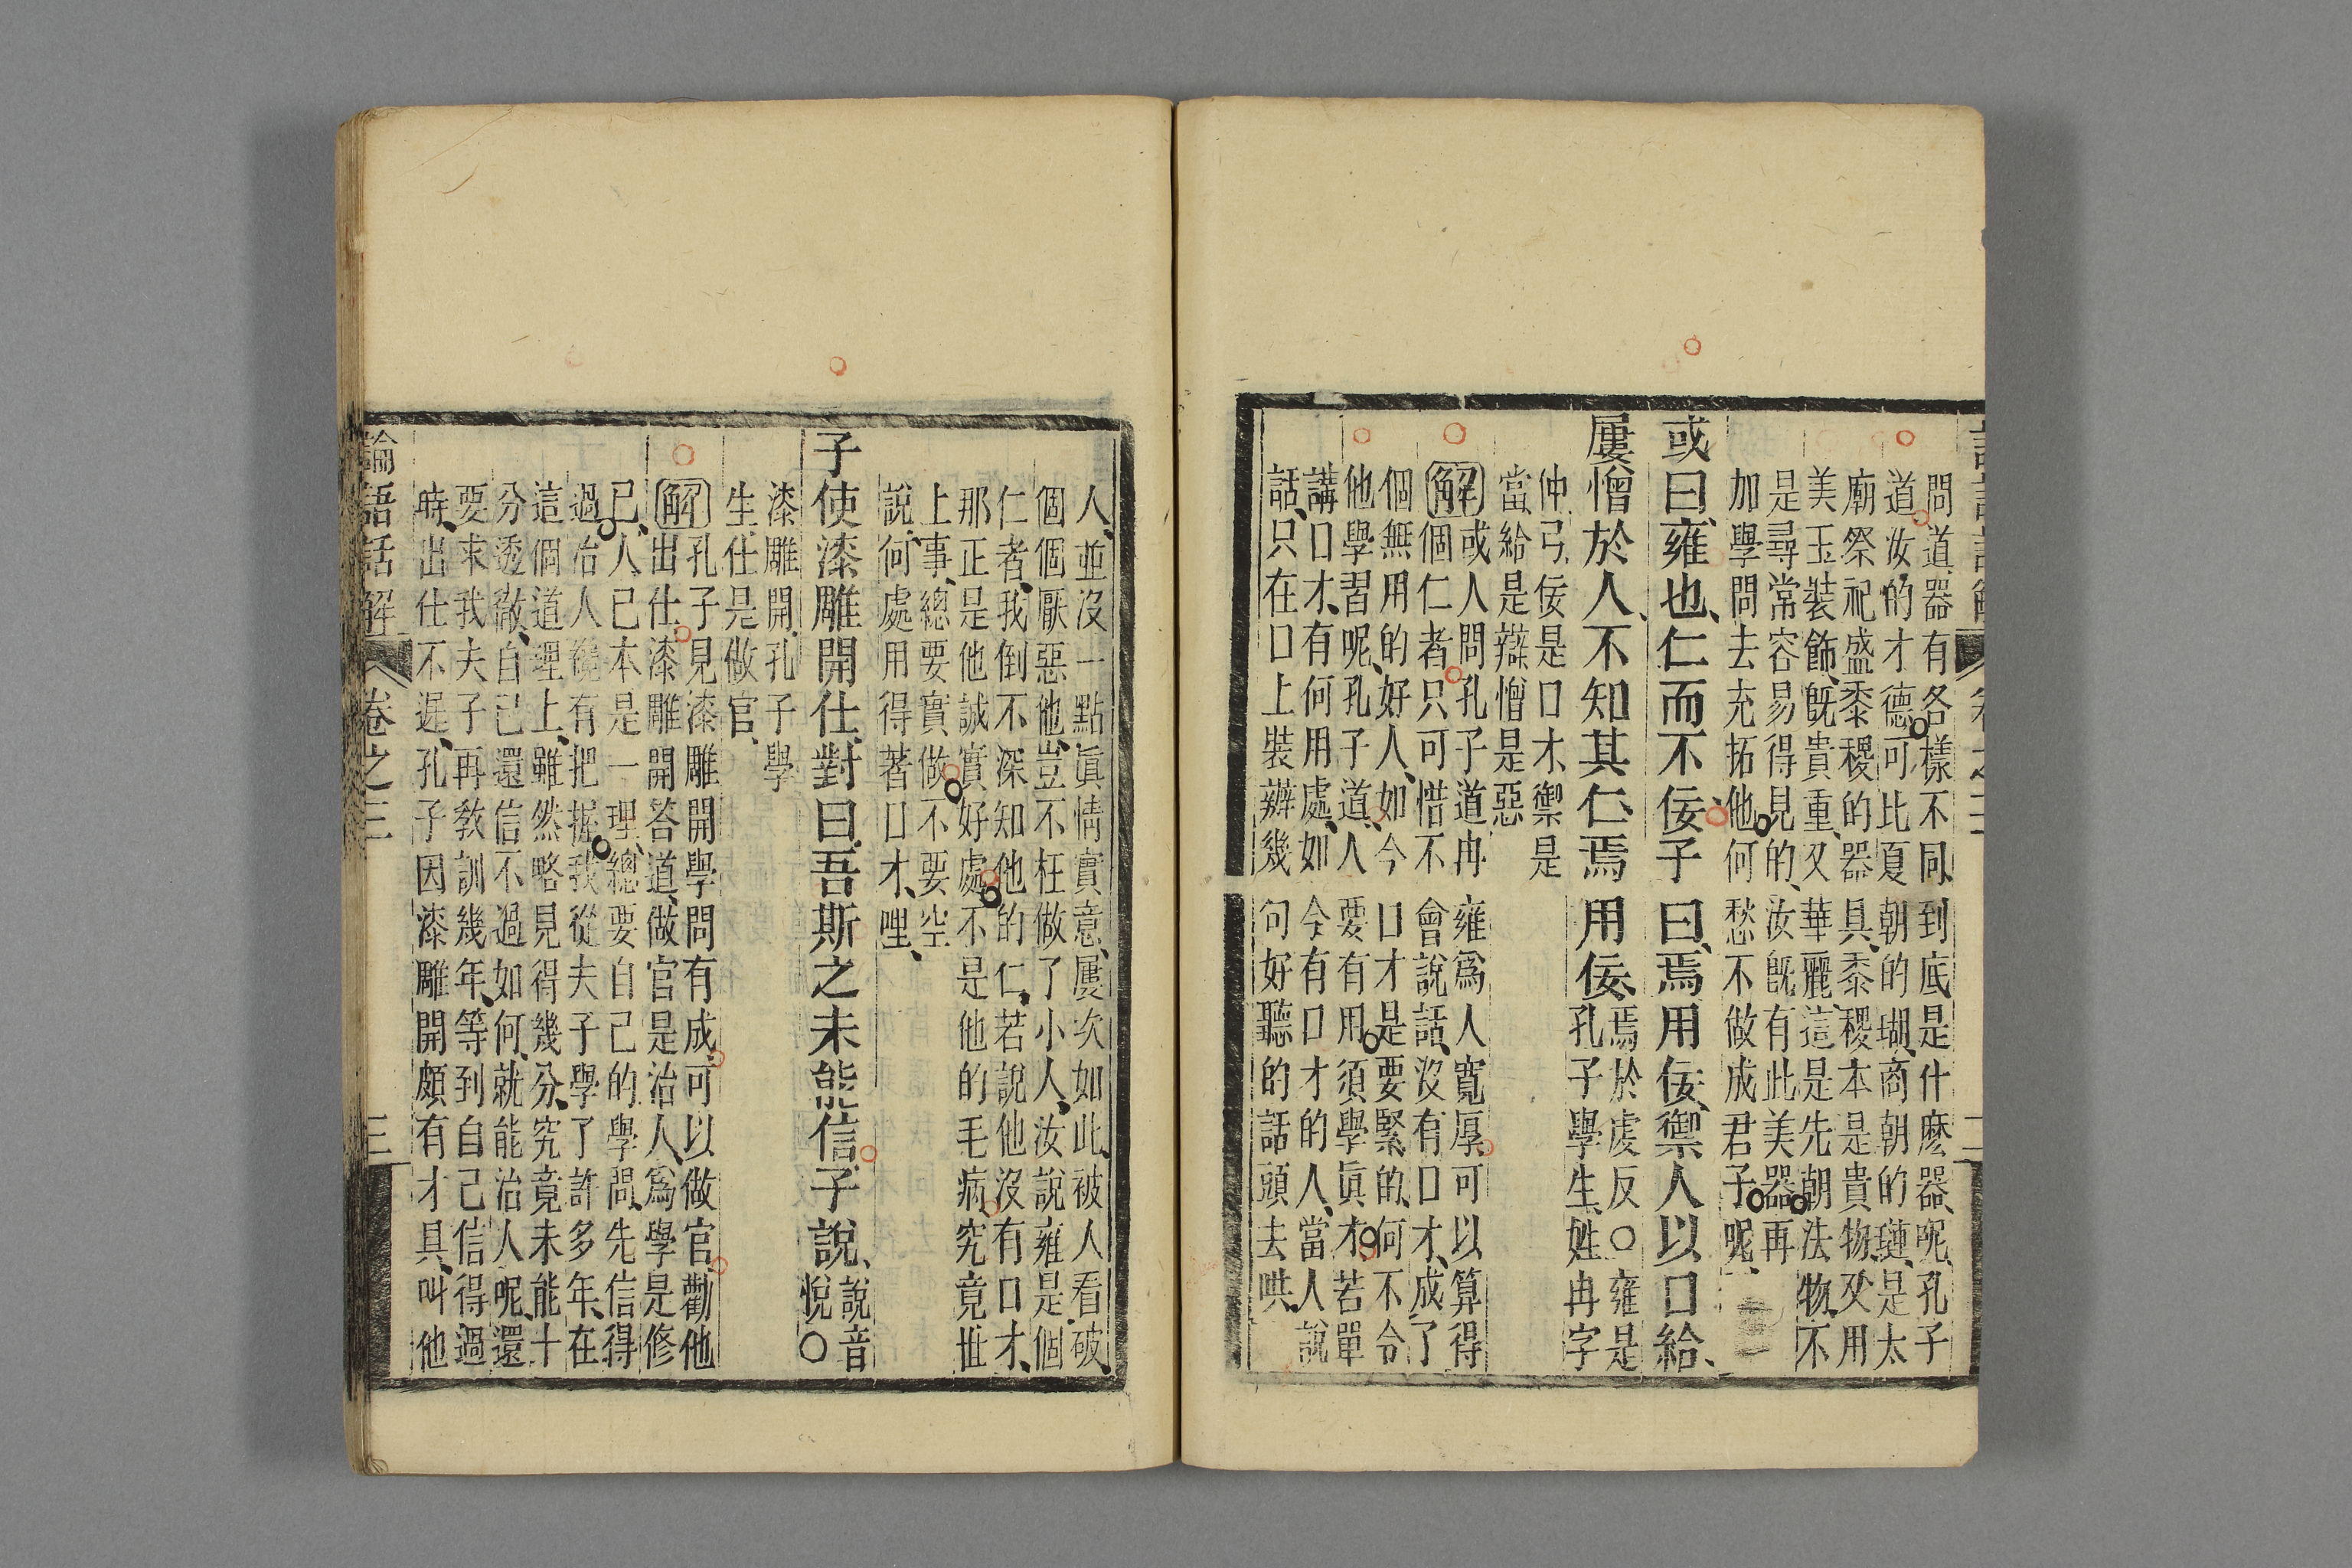 問道、器有各樣不同、到底是什麽器、呢、孔子
道、汝的才德、可比夏朝的瑚、商朝的璉、是太
廟祭祀盛黍稷的器具、黍稷本是貴物、又用
美玉裝飾、既貴重、又華麗、這是先朝法物、不
是尋常容易得見的、汝既有此美器、再
加學問去充拓他、何愁不做成君子呢、
或曰、雍也、仁而不佞、子曰、焉用佞、禦人以口給、
屢憎於人、不知其仁、焉用佞、焉於虔反○雍是孔子學生、姓冉字
仲弓、佞是口才、禦是
當、給是辯、憎是惡
解或人問孔子道、冉雍爲人寬厚、可以算得
個仁者、只可惜不會說話、沒有口才、成了
個無用的好人、如今口才是要緊的、何不令
他學習呢、孔子道、人要有用、須學眞才、若單
講口才、有何用處、如今有口才的人、當人說
話、只在口上裝辦幾句好聽的話頭去哄、
人、並沒一點眞情實意、屢次如此、被人看破、
個個厭惡他、豈不枉做了小人、汝說雍是個
仁者、我倒不深知他的仁、若說他沒有口才、
那正是他誠實好處、不是他的毛病、究竟世
上事、總要實做、不要空
說、何處用得著口才、哩、
子使漆雕開仕、對曰、吾斯之未能信、子說、說音悅○
漆雕開、孔子學
生、仕是做官、
解孔子見漆雕開學問有成、可以做官、勸他
出仕、漆雕開答道、做官是治人、爲學是修
己、人己本是一理、總要自己的學問、先信得
過、治人纔有把握、我從夫子學了許多年、在
這個道理上、雖然略見得幾分、究竟未能十
分透徹、自己還信不過、如何就能治人呢、還
要求我夫子再教訓幾年、等到自己信得過
時、出仕不遲、孔子因漆雕開頗有才具、叫他
論語話解 卷之三 三